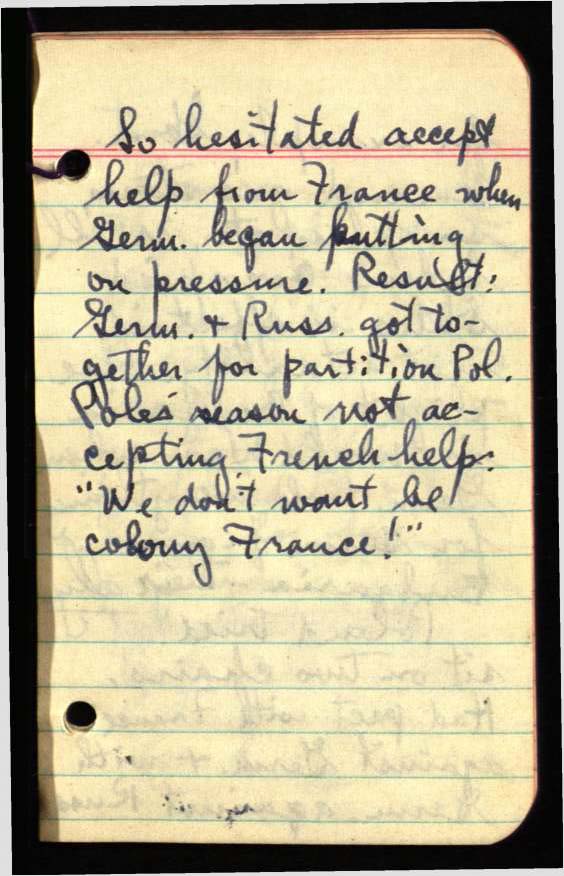 So hesitated accept
help from France when
Germ. began putting
on pressure. Result:
Germ. + Russ. got to-
gether for partition Pol.
Poles' reason not ac-
cepting French help:
"We don't want be
colony France!"